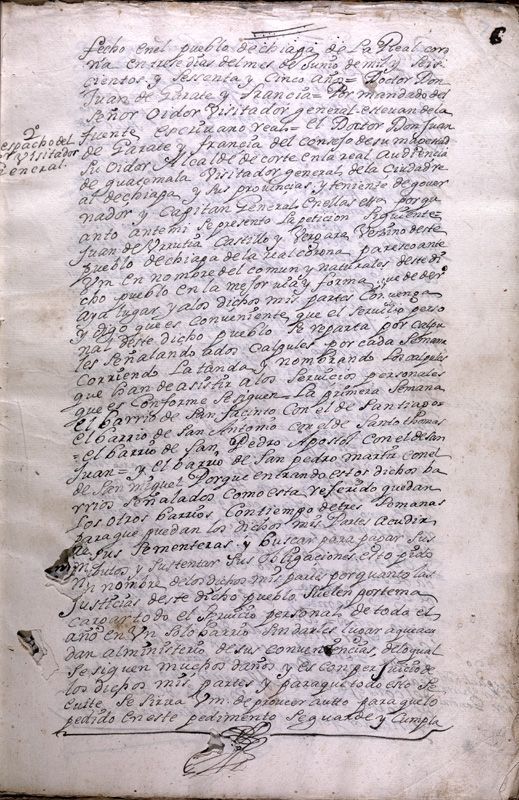 6
fecho enel pueblo dechiapa de la Real coro
na en siete dias del mes de Junio de mil y seis
cientos y sessenta y Cinco años = Doctor Don
Juan de Garate y francia = Por mandado del
Señor Oidor Visitador general estevan de la
fuente escriuano real = el Doctor Don Juan
de Garate y francia del consejo de su magestad
su Oidor Alcalde de corte en la real audiencia
de guatemala Visitador general de la Ciudad re
al de chiapa y sus provincias y teniente de gover
nador y Capitan General en ellas etta por qu
anto antemi se presento la petticion siguiente
Juan de Urrutia Castillo y Vergara Vezino de este
pueblo dechiapa de la real corona paresco ante
Vm en nombre del comun y naturales deste di
cho pueblo en la mejor via y forma que de der
aya lugar y a los dichos mis partes Convenga
y digo que es conveniente que el servicio perso
nal deste dicho pueblo se reparta por calpu
les señalando a dos calpules por cada semana
Corriendo La tanda y nombrando los calpules
que han de asistir a los servicios personales
que es conforme se siguen = La primera semana
el barrio de San Jacinto Con el de Santiago =
el barrio de san Antonio con el de Santo thomas
= el barrio de san Pedro Apostol Con el de San
Juan = y el barrio de San pedro martir con el
de San miguel Porque entrando estos dichos ba
rrios señalados como esta referido quedan
Los otros barrios Con tiempo de tres semanas
para que puedan los dichos mis partes acudir
a sus sementeras y buscar para pagar sus
tributos y sustentar sus obligaciones esto pido
en nombre de los dichos mis partes por quanto las
Justicias deste dicho pueblo suelen por tema
cargar todo el servicio personal de toda el
año en Un solo barrio sin darles lugar a que acu
dan al ministerio de sus conveniencias, de lo qual
se siguen muchos daños y es con perjuicio de
los dichos mis partes y para que todo esto se
evite se sirva Vm. de proveer autto para que lo
pedido en este pedimento se guarde y Cumpla
2º
espacho del
or Visitador
General.